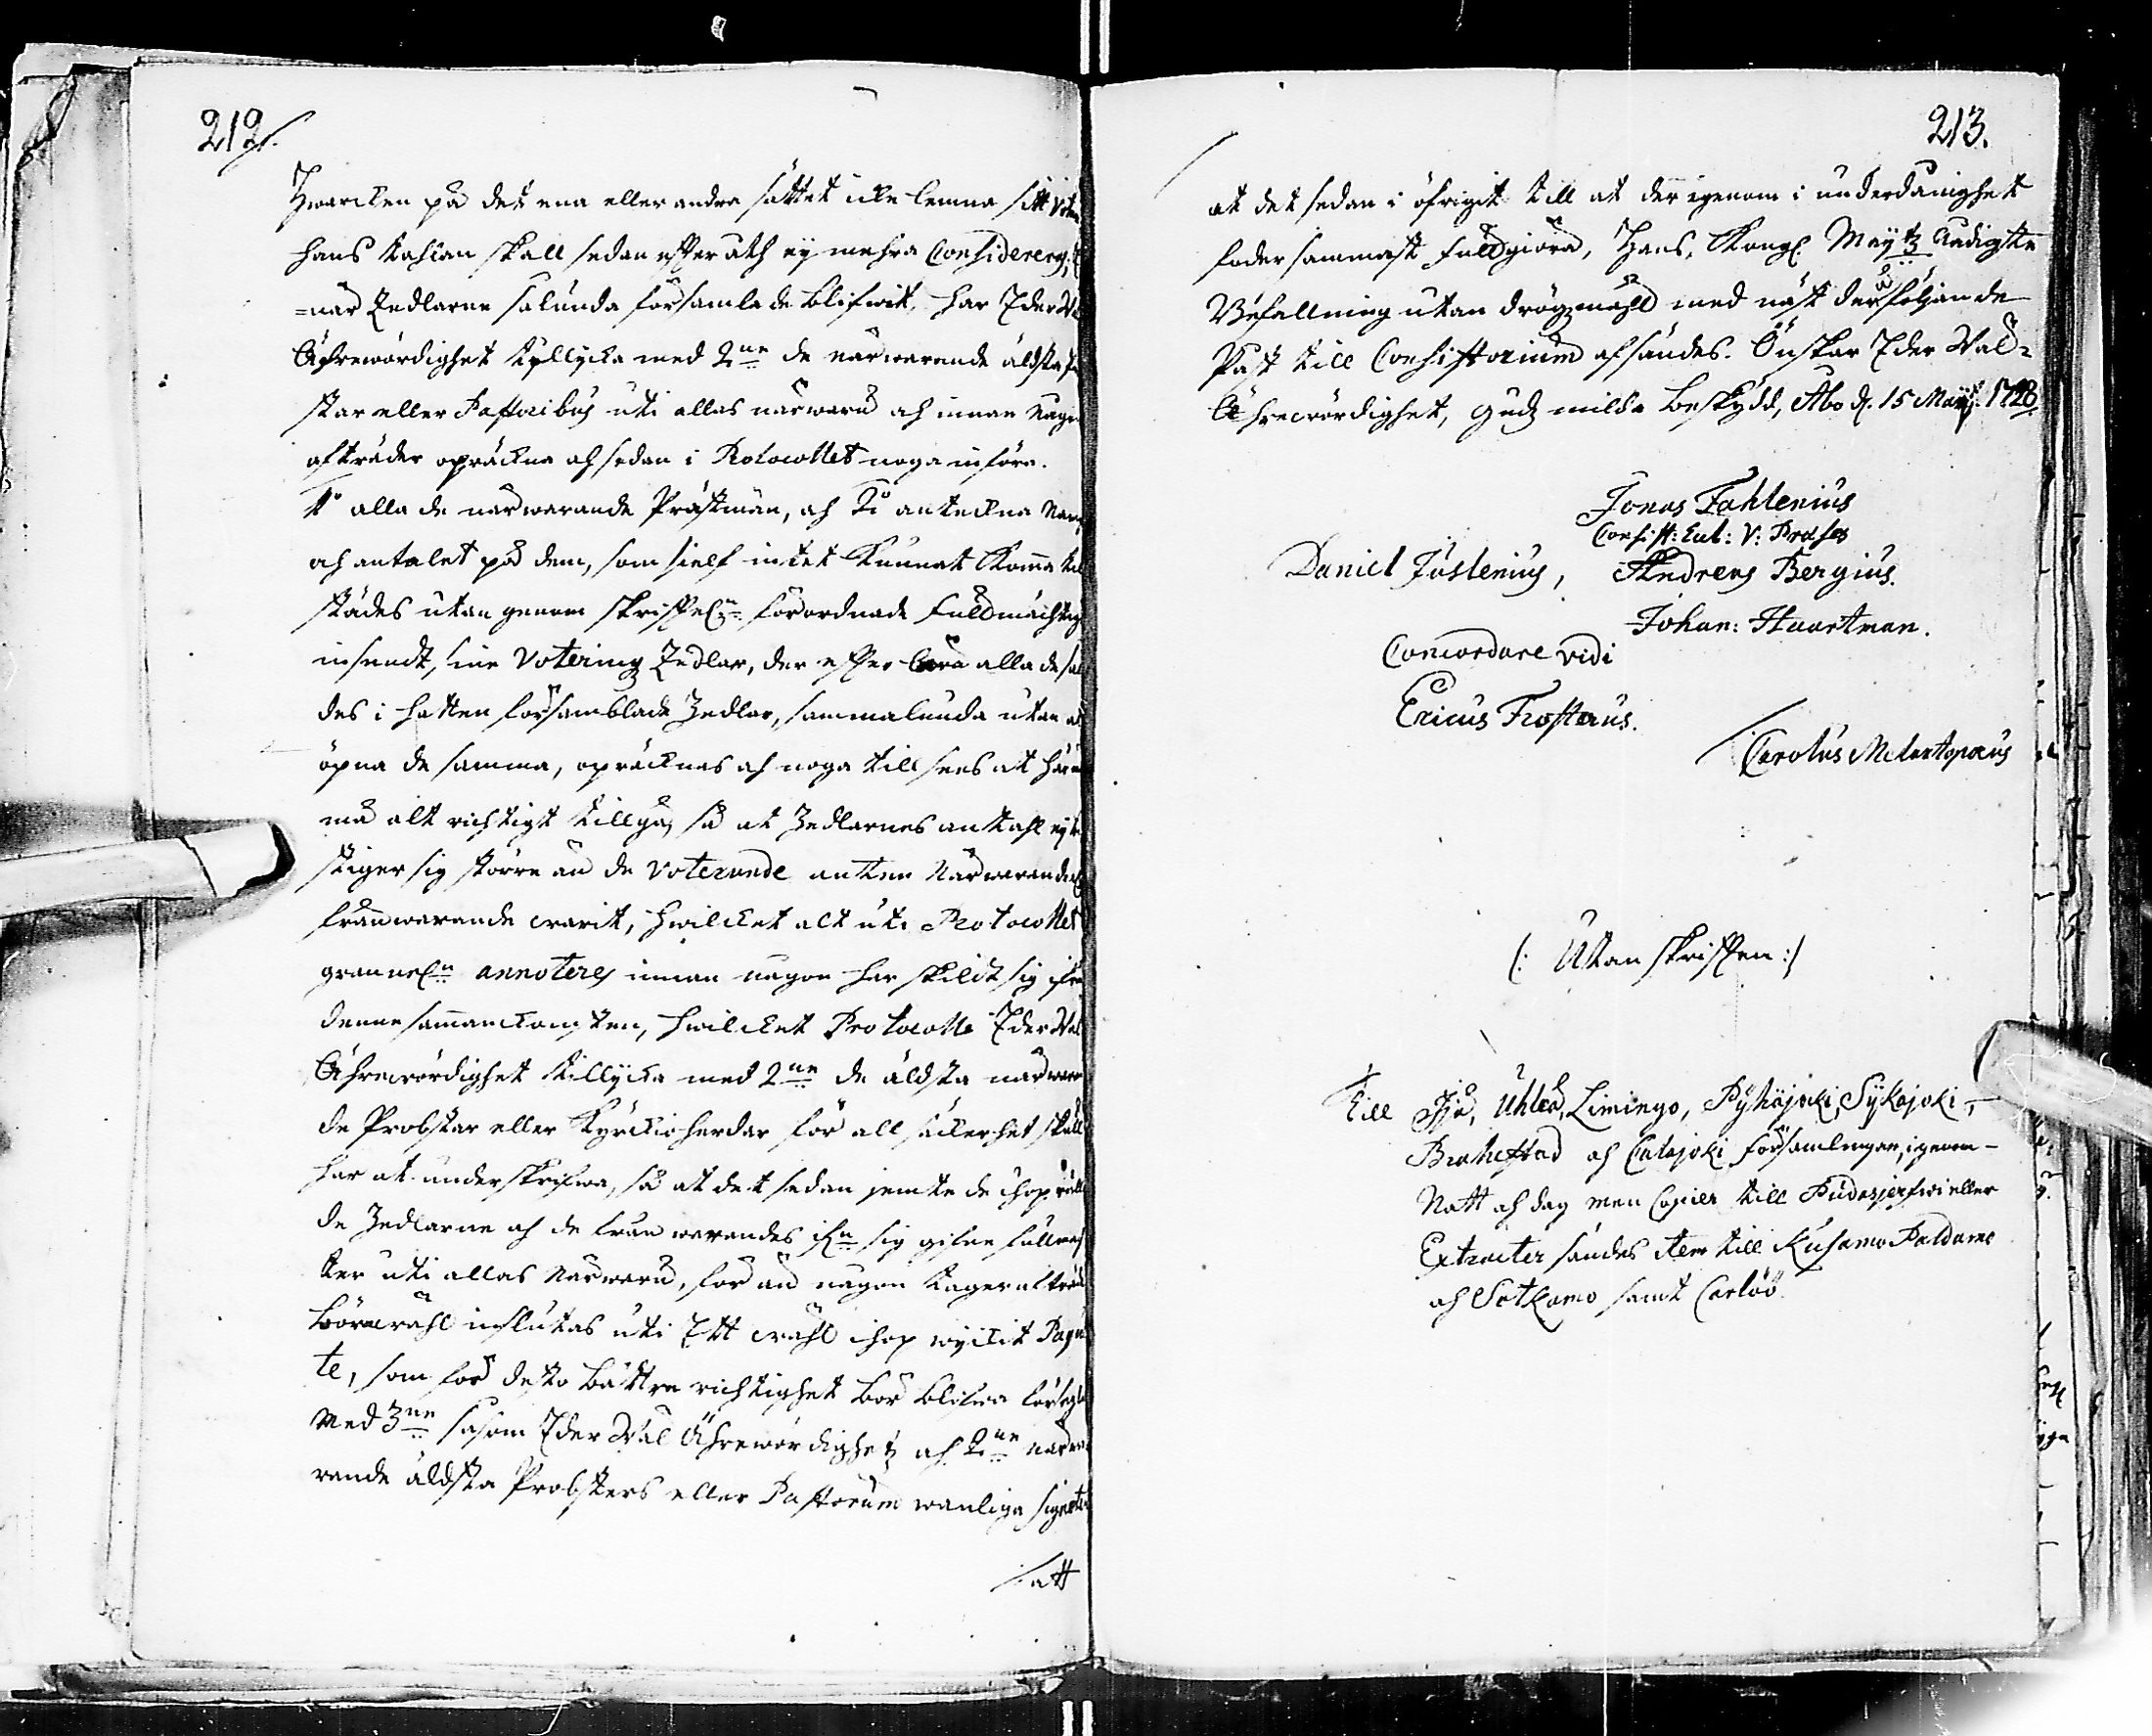 212.
Hwarcken på det ena eller andra sättet icke lemna sitt
hans kahlan skall sedan effteråth ey mehra Considereras,
när Zedlarne sålunda församlade blifwit, har Eder Wäl
Ährewördighet tillijka med 2ne de närwarande äldsta
star eller Pastoribus uti allas närwaru och innan någon
afträder opräckna och sedan i Protocollet noga införa.
1o alla de närwarande Prästmän, och 2o anteckna Namn
och antalet på dem, som sielf intet kunnat komma til
städes utan genom skriffteln förordnade Fuldmächtig
insendt, sine Voterings Zedlar, der effter böra alla de
des i hatten församblade Zedlar, sammalunda utan at
öpna de samma, opräcknas och noga till sees at här
må alt richtigt tillgå, så at Zedlarnes anttahl ey
stiger sig större än de Voterande antten Närwarande
frånwarande warit, hwilcket alt uti Protocollet
granneln annoteres innan någon har skildt sig ifrån
denne sammankomsten, hwilcket Protocolle Eder Wäl
Ährewördighet tillijka med 2ne de äldsta närwaran
de Probstar eller Kyrckioherdar för all säckerhet skull
har at underskrifwa, så at det sedan jemte de ihoprull
de Zedlarne och de frånwarandes ifrån sig gifne fullmach
ter uti allas Närwaru, för än någon tager afträde
böra wähl inslutas uti Ett wähl ihop wijckit Paque
te, som för desto bättre richtighet bör blifwa försegl
Med 3ne såsom Eder Wäl Ährewördighetz och 2ne närwa
rande äldsta Probsters eller Pastorum wanliga signeter
att
213.
at det sedan i öfrigit till at der igenom i underdånighet
fodersammast fullgiöra, Hans, Kongl. Maytz Nådigste
Befallning utan drögzmåhl med näst der på följande
Påst till Consistorium afsändes. Önskar Eder Wäl-
Ährewördighet, Gudz milda beskydd, Åbo d. 15 Maij 1728.
Jonas Fahlenius
Consist: Eccl: V: Præses
Daniel Juslenius, Andreas Bergius.
Johan: Haartman.
Concordare vidi
Ericus Frosterus.
Carolus Melartopæus
(: Utan skrifften :)
Till Ijå, Uhleå, Limingo, Pyhäjoki, Sijkajoki,
Brahestad och Calajoki församlingar, igenom
Natt och dag men Copier till Pudasjerfwi eller
Extracter sändes item till Kusamo Paldamo
och Sotkamo samt Carlöö.